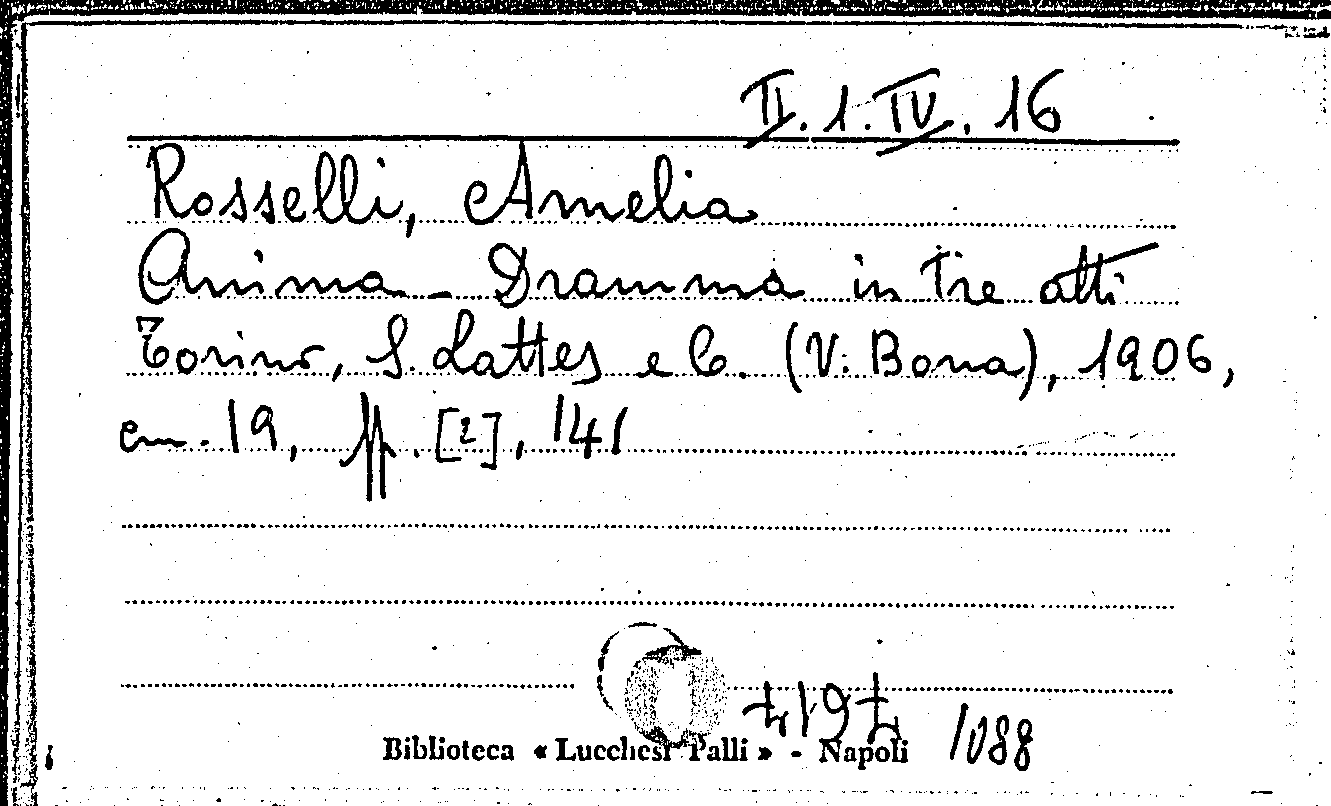 II.1.IV.16
Rosselli, Amelia
Anima - Dramma in tre atti
Torino, S. Lattes e C. (V. Bona), 1906,
cm. 19, pp. [2], 141
1088
Biblioteca « Lucchesi Palli » - Napoli